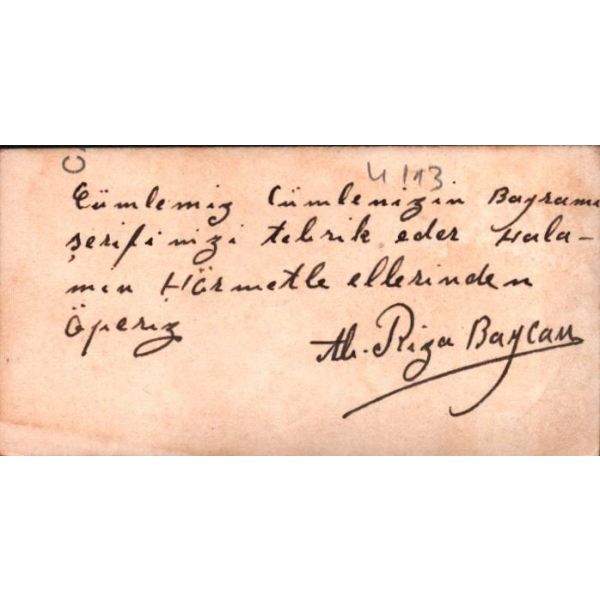 4/13
Cümlemiz Cümlenizin Bayramı
şerifinizi tebrik eder Hala-
mın Hörmetle ellerinden
Öperiz
Ali Rıza Baycan